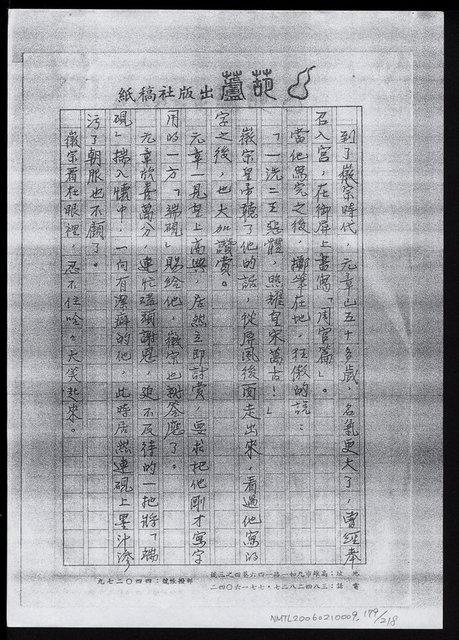 葫蘆出版社稿紙
到了徽宗時代，元章已五十多歲，名氣更大了，曾經奉
召入宮，在御屏上書寫「周官篇」。
當他寫完之後，擲筆在地，狂傲的說：
「一洗二王惡體，照耀皇宋萬古！」
徽宗皇帝聽了他的話，從屏風後面走出來，看過他寫的
字之後，也大加讚賞。
元章一見皇上高興，居然立即討賞，要求把他剛才寫字
用的一方「端硯」賜給他，徽宗也就答應了。
元章欣喜萬分，連忙磕頭謝恩，迫不及待的一把將「端
硯」揣入懷中，一向有潔癖的他，此時居然連硯上墨汁滲
污了朝服也不顧了。
徽宗看在眼裡，忍不住哈哈大笑起來。
地址：高雄市九如一路一四六巷四之三號
電話：三八四二八二七．七七一六〇四二
郵撥帳號：四四〇二七九
NMTL20060210009
179/218